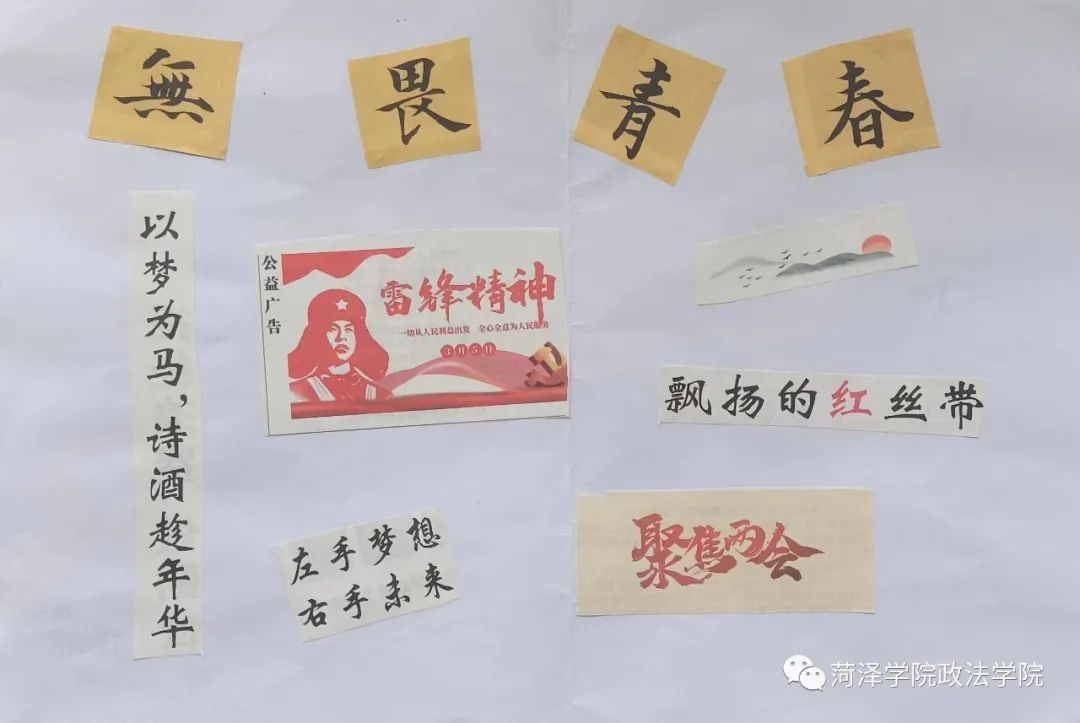 無畏青春
以梦为马，诗酒趁年华
公益广告
雷锋精神
一切从人民利益出发 全心全意为人民服务
3月5日
飘扬的红丝带
左手梦想
右手未来
聚焦两会
菏泽学院政法学院